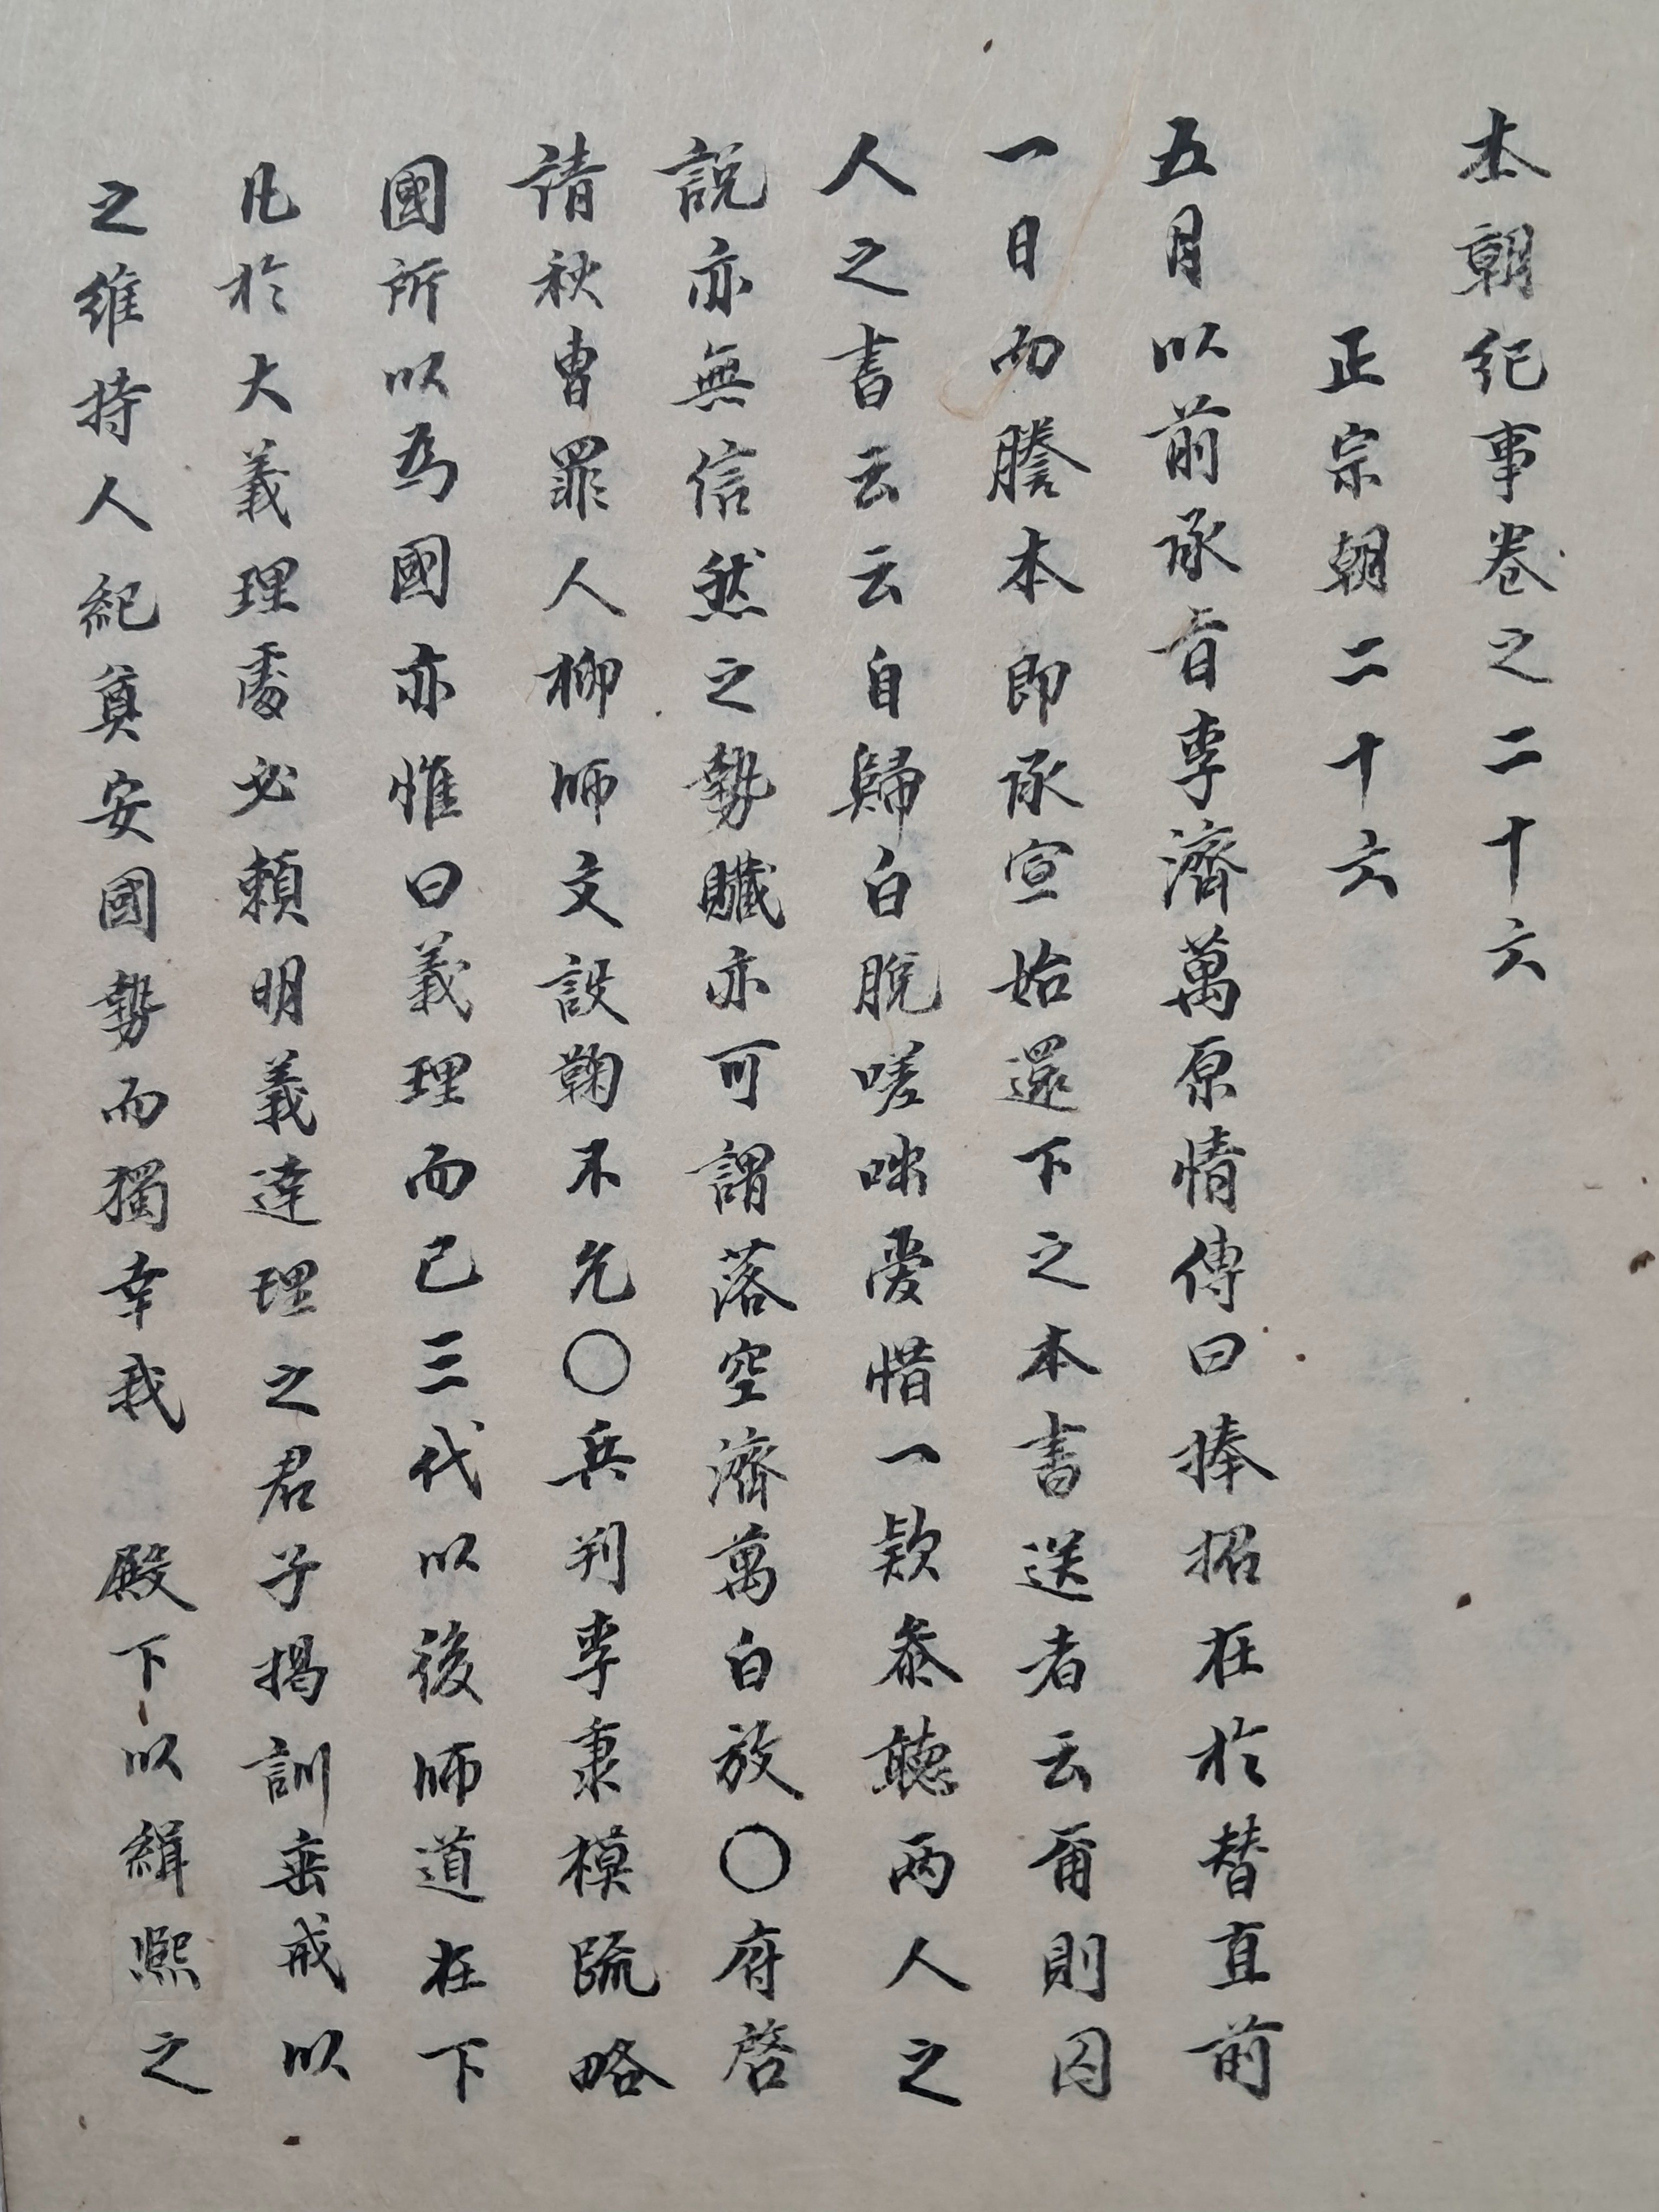 本朝紀事卷之二十六
正宗朝二十六
五月以前承旨李濟萬原情傳曰捧招在於替直前
一日而謄本即承宣始還下之本書送者云爾則囚
人之書云云自歸白脫嗟咄愛惜一款叅聽兩人之
說亦無信然之勢贓亦可謂落空濟萬白放○府啓
請秋曹罪人柳師文設鞠不允○兵判李秉模疏略
國所以爲國亦惟曰義理而已三代以後師道在下
凡於大義理處必賴明義達理之君子揭訓垂戒以
之維持人紀奠安國勢而獨幸我 殿下以緝熙之